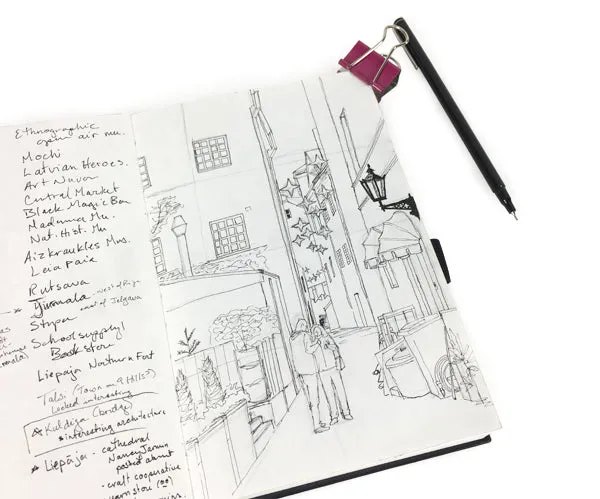 Ethnographic
open air mu.
Mochi
Latvian Heroes.
Art Nuvo
Central Market
Black Magic Bar
Madonna Mu.
Nat. Hist. Mu
Aizkraukles Mus.
Rutsava
Jurmala - west of Riga
east of Jelgava
School supply/
Book store
Liepaja Northern Fort
Talsi (Town on 9 Hills?)
Looked interesting
Kuldiga (bridge)
* interesting architecture
* Liepāja - cathedral
posted about
- craft cooperative
yarn store